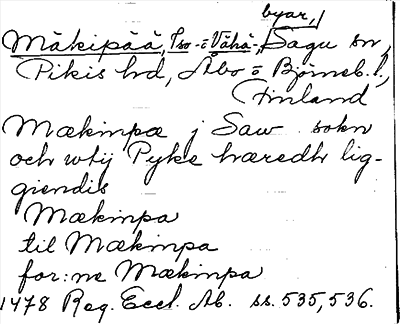 byar,
Mäkipää, Iso- o Vähä-, Sagu sn,
Pikis hd, Åbo o Björneb. l.,
Finland
Mækinpæ j Saw sokn
och wtij Pyke hæredh lig-
giendis
Mækinpa
til Mækinpa
for:ne Mækinpa
1478 Reg. Eccl. Ab. ss. 535, 536.